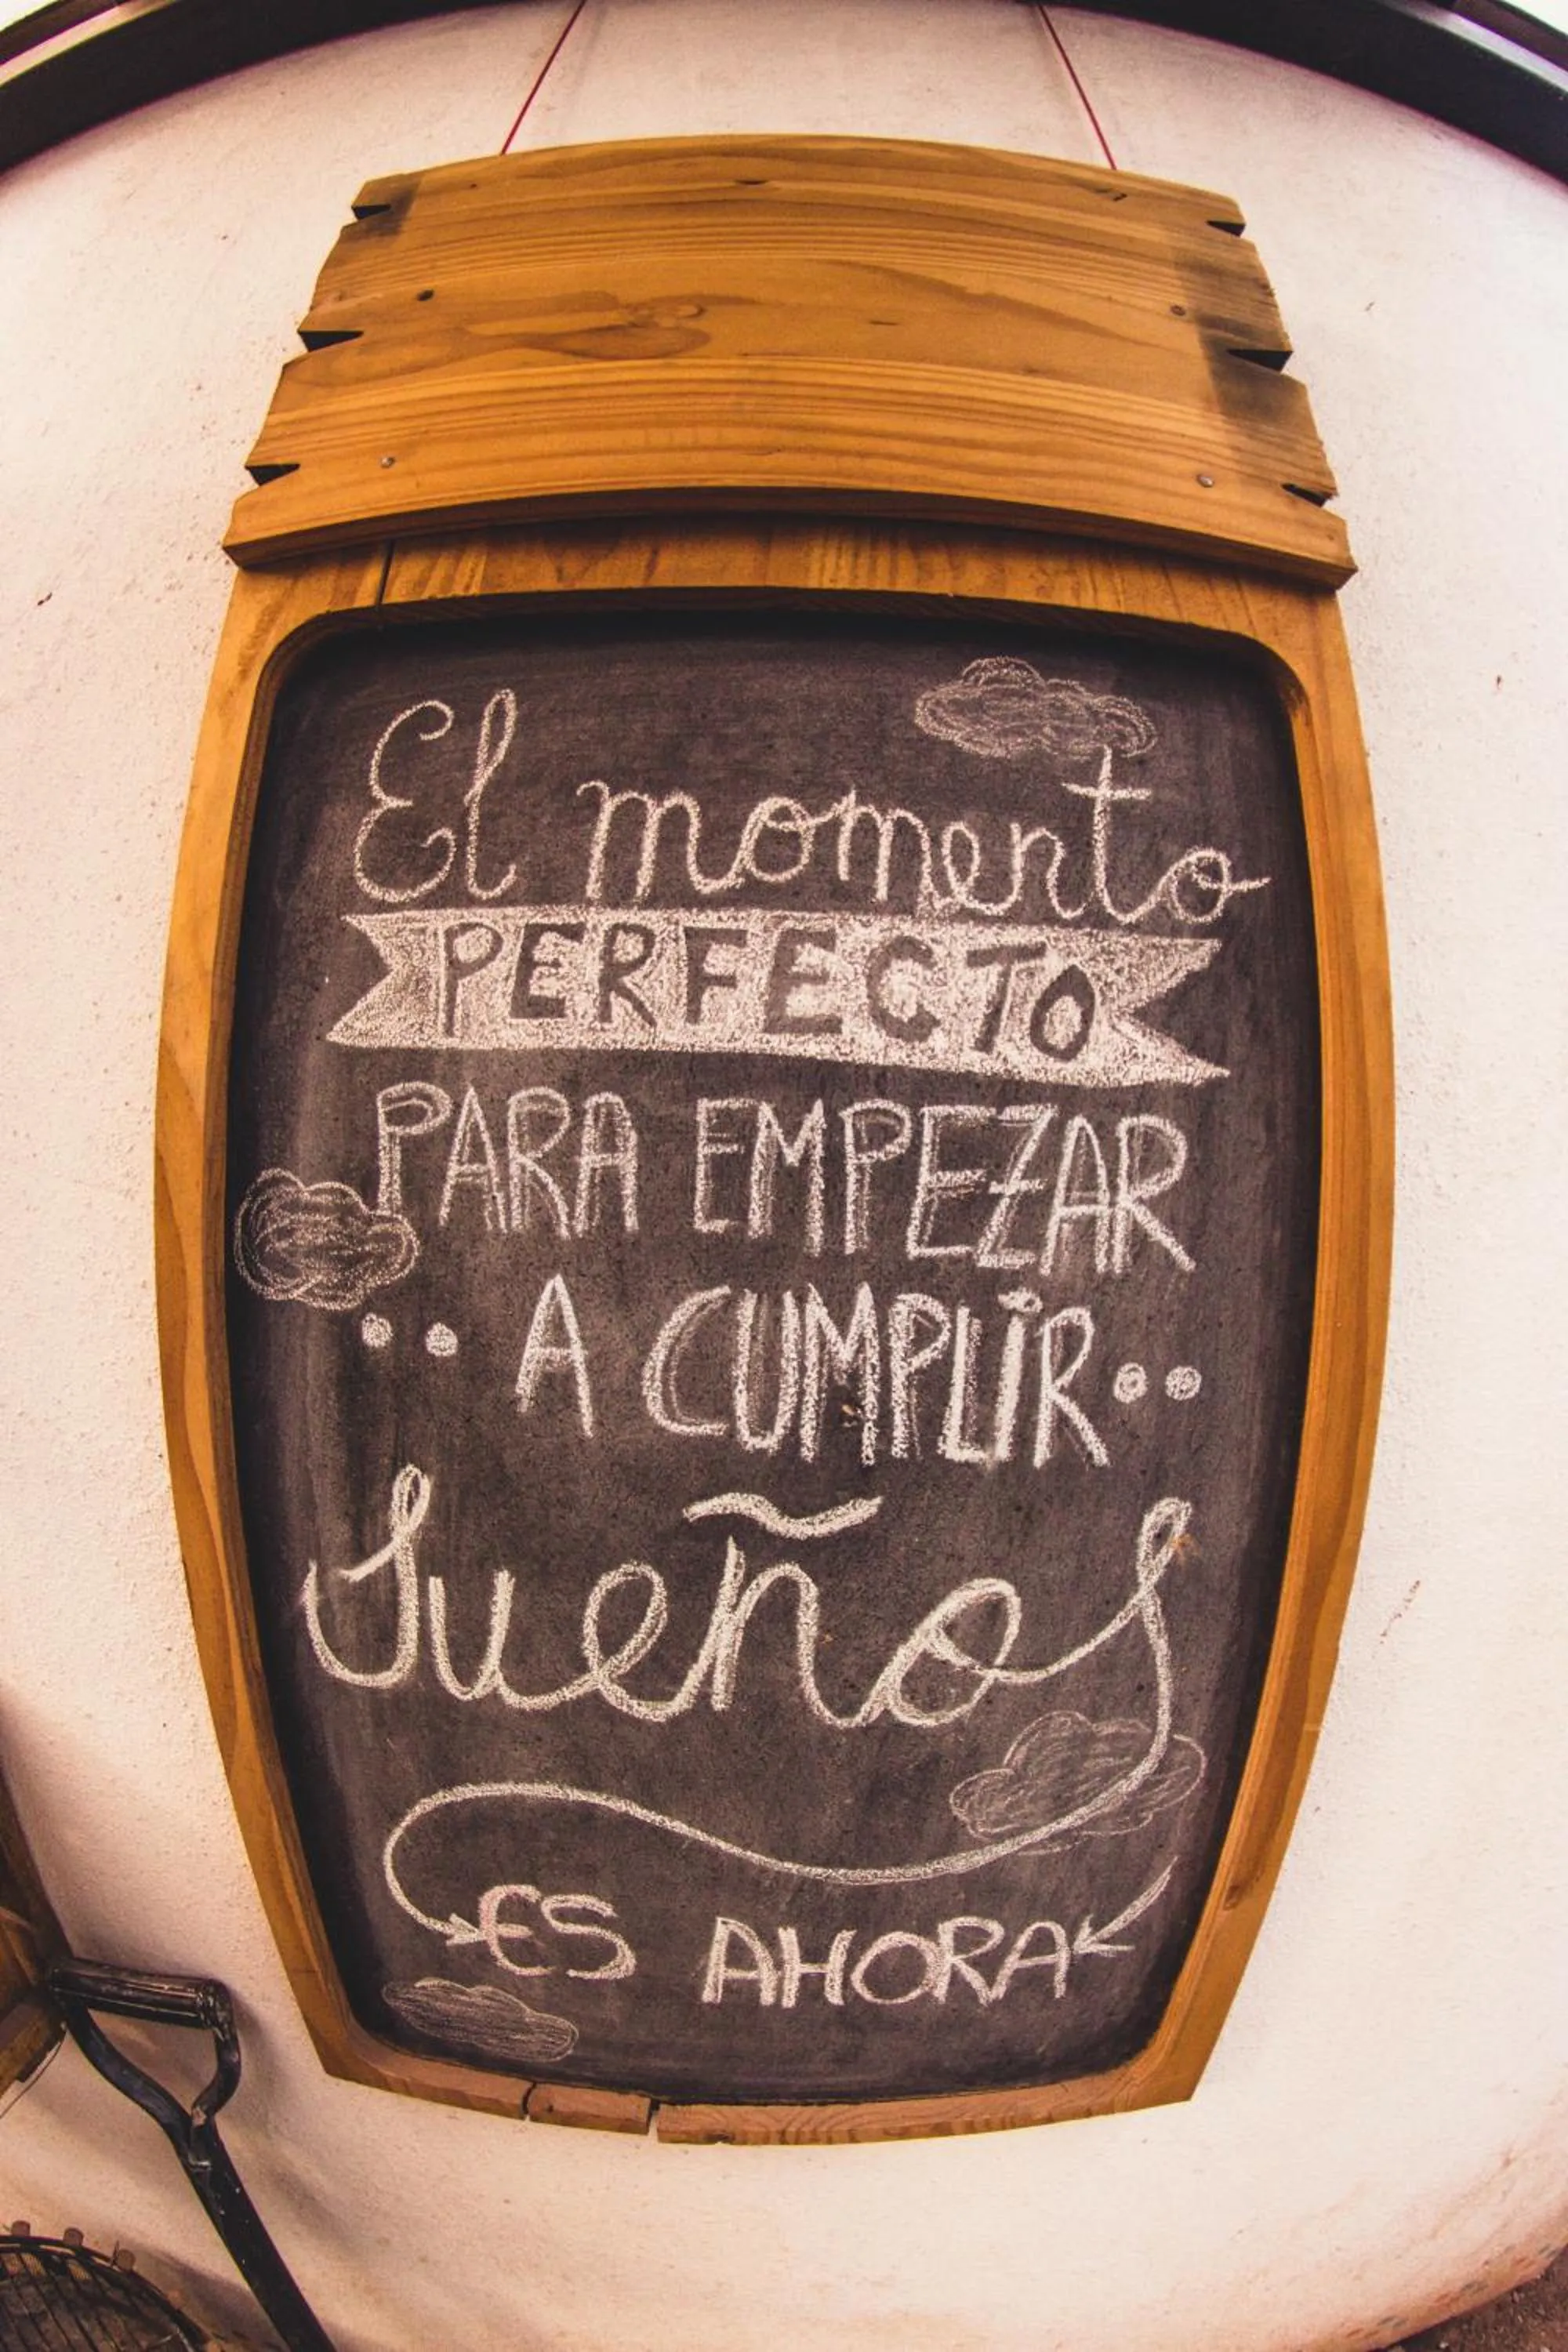 El momento
PERFECTO
PARA EMPEZAR
A CUMPLIR
Sueños
ES AHORA